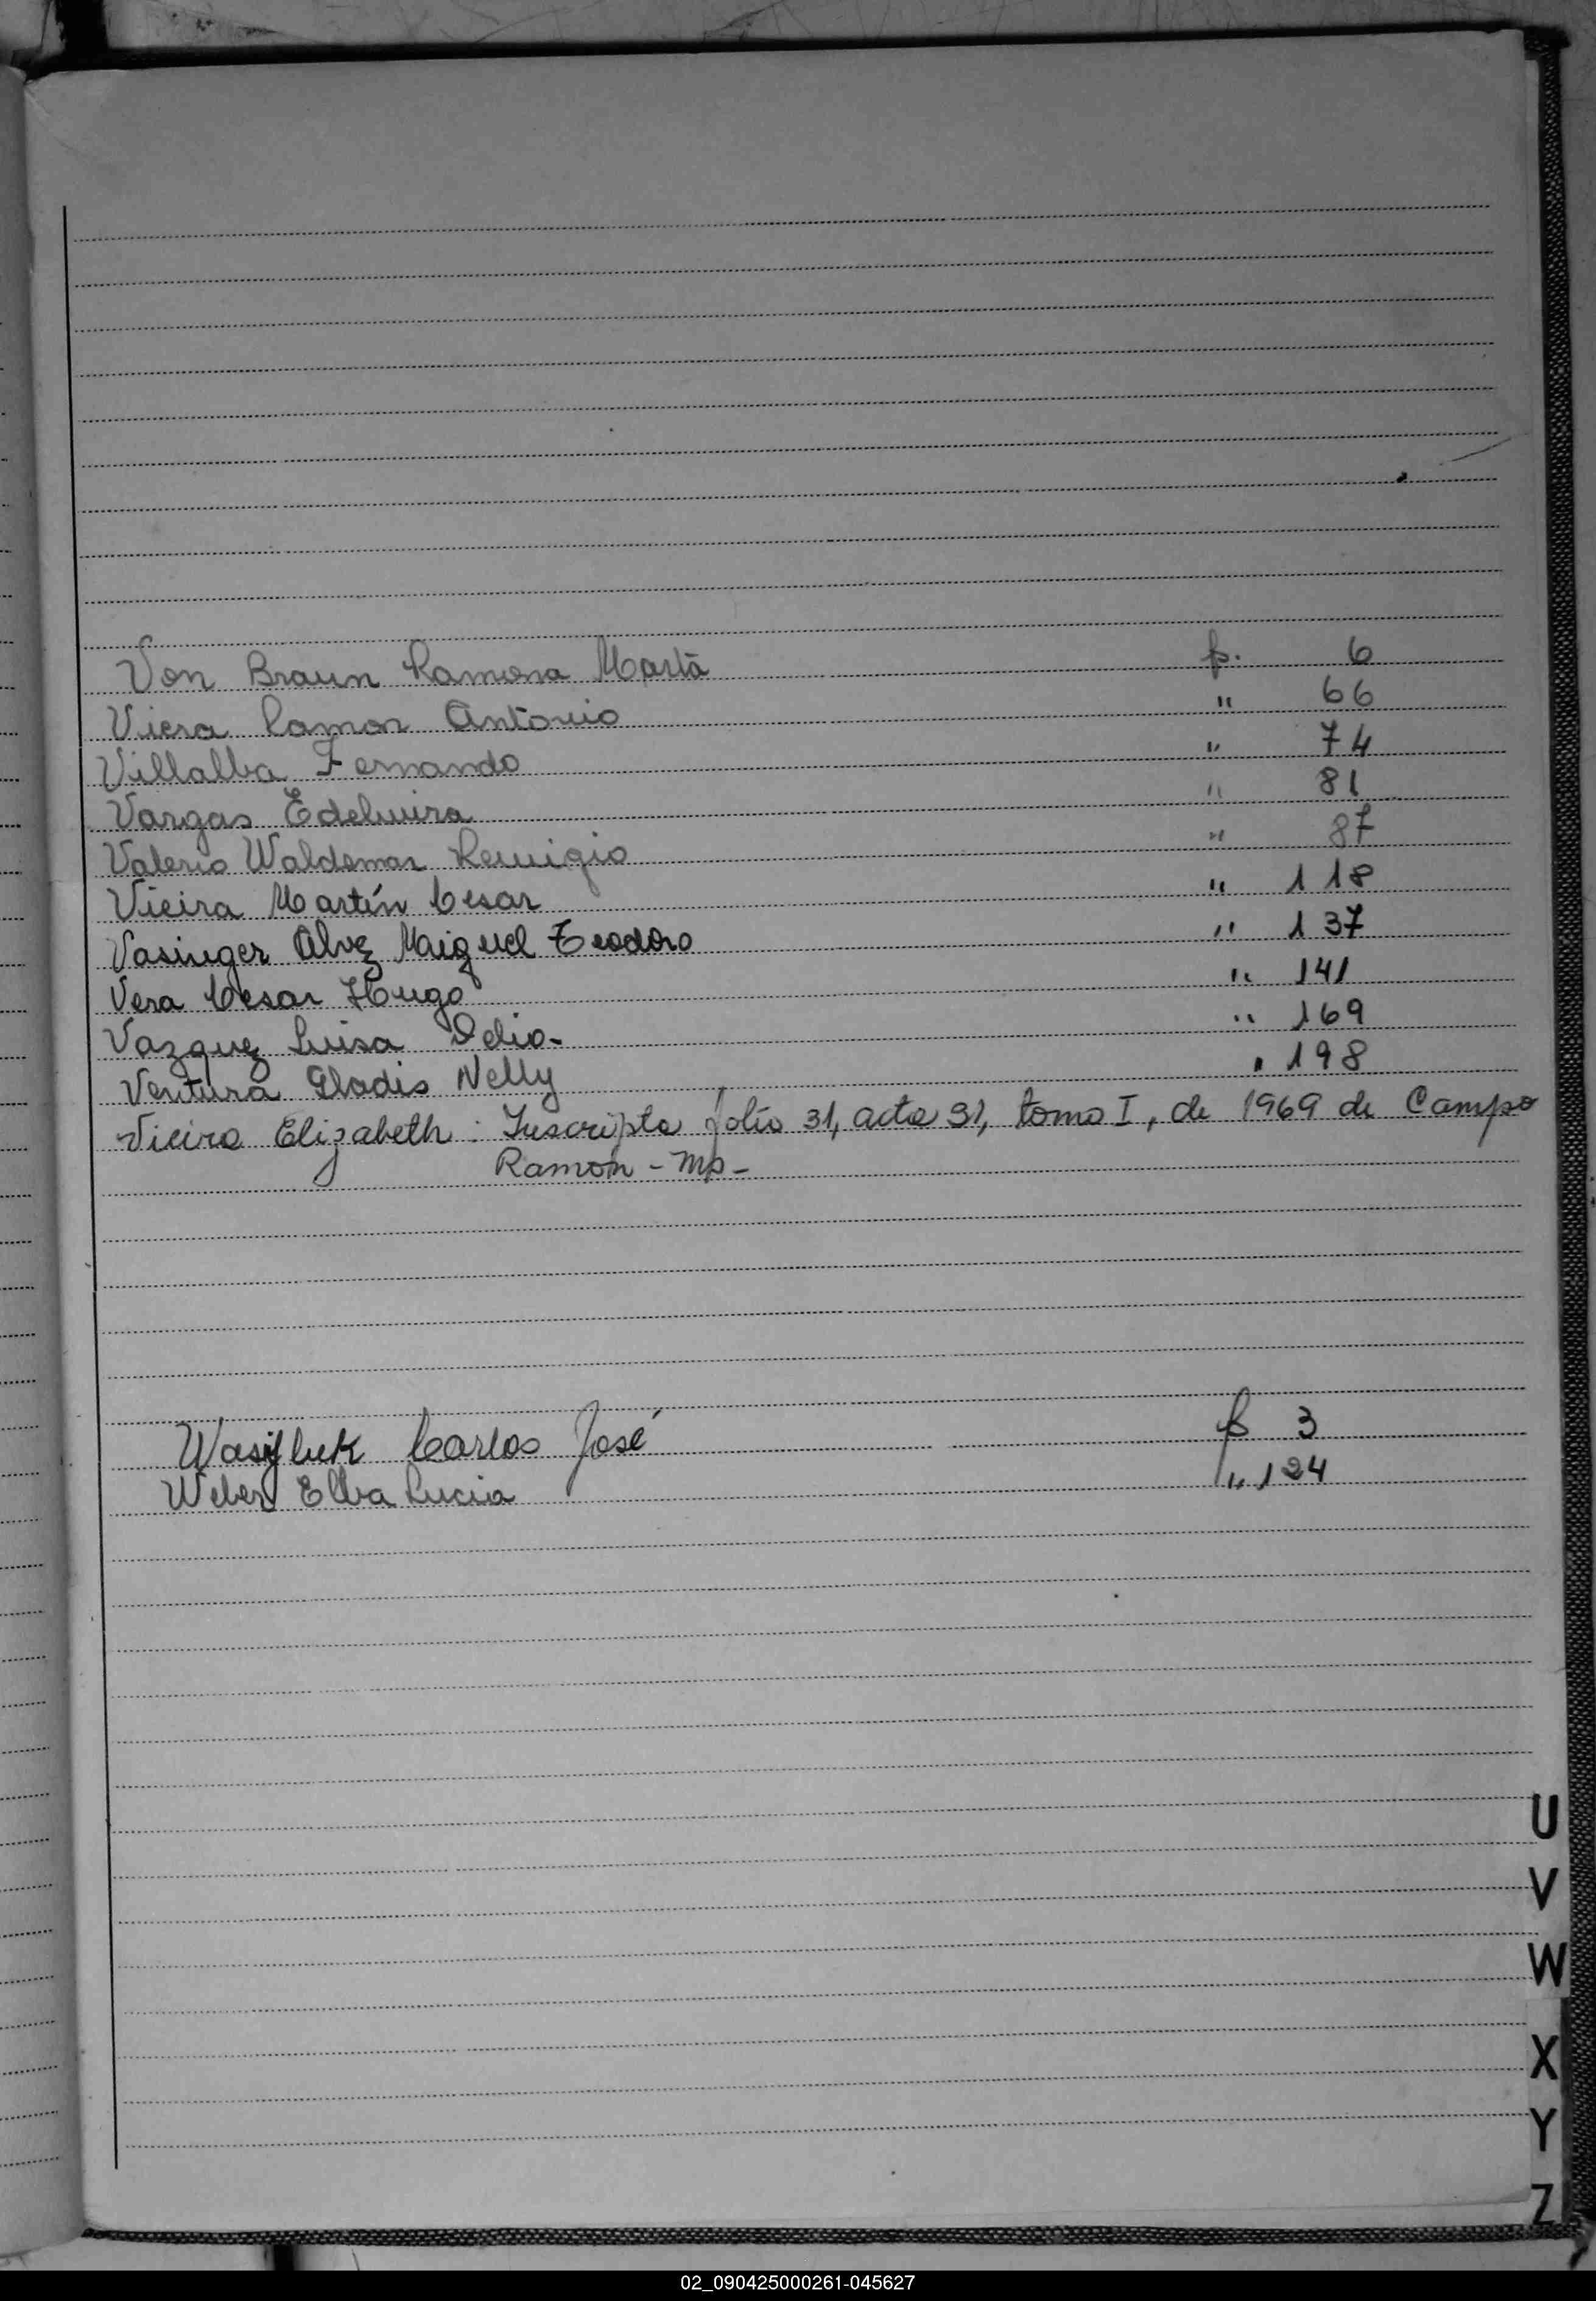 Von Braun Ramona Marta f. 6
Viera Ramon Antonio " 66
Villalba Fernando " 74
Vargas Edelmira " 81
Valerio Waldemar Remigio " 87
Vieira Martín Cesar " 118
Vasinger Alvez Maiguel Teodoro " 137
Vera Cesar Hugo " 141
Vazquez Luisa Delia- " 169
Ventura Gladis Nelly " 198
Vieira Elizabeth : Inscripta folio 31, acta 31, tomo I, de 1969 de Campo
Ramon - Mp -
Wasyluk Carlos José f 3
Weber Elba Lucia " 124
U
V
W
X
Y
Z
02_090425000261-045627